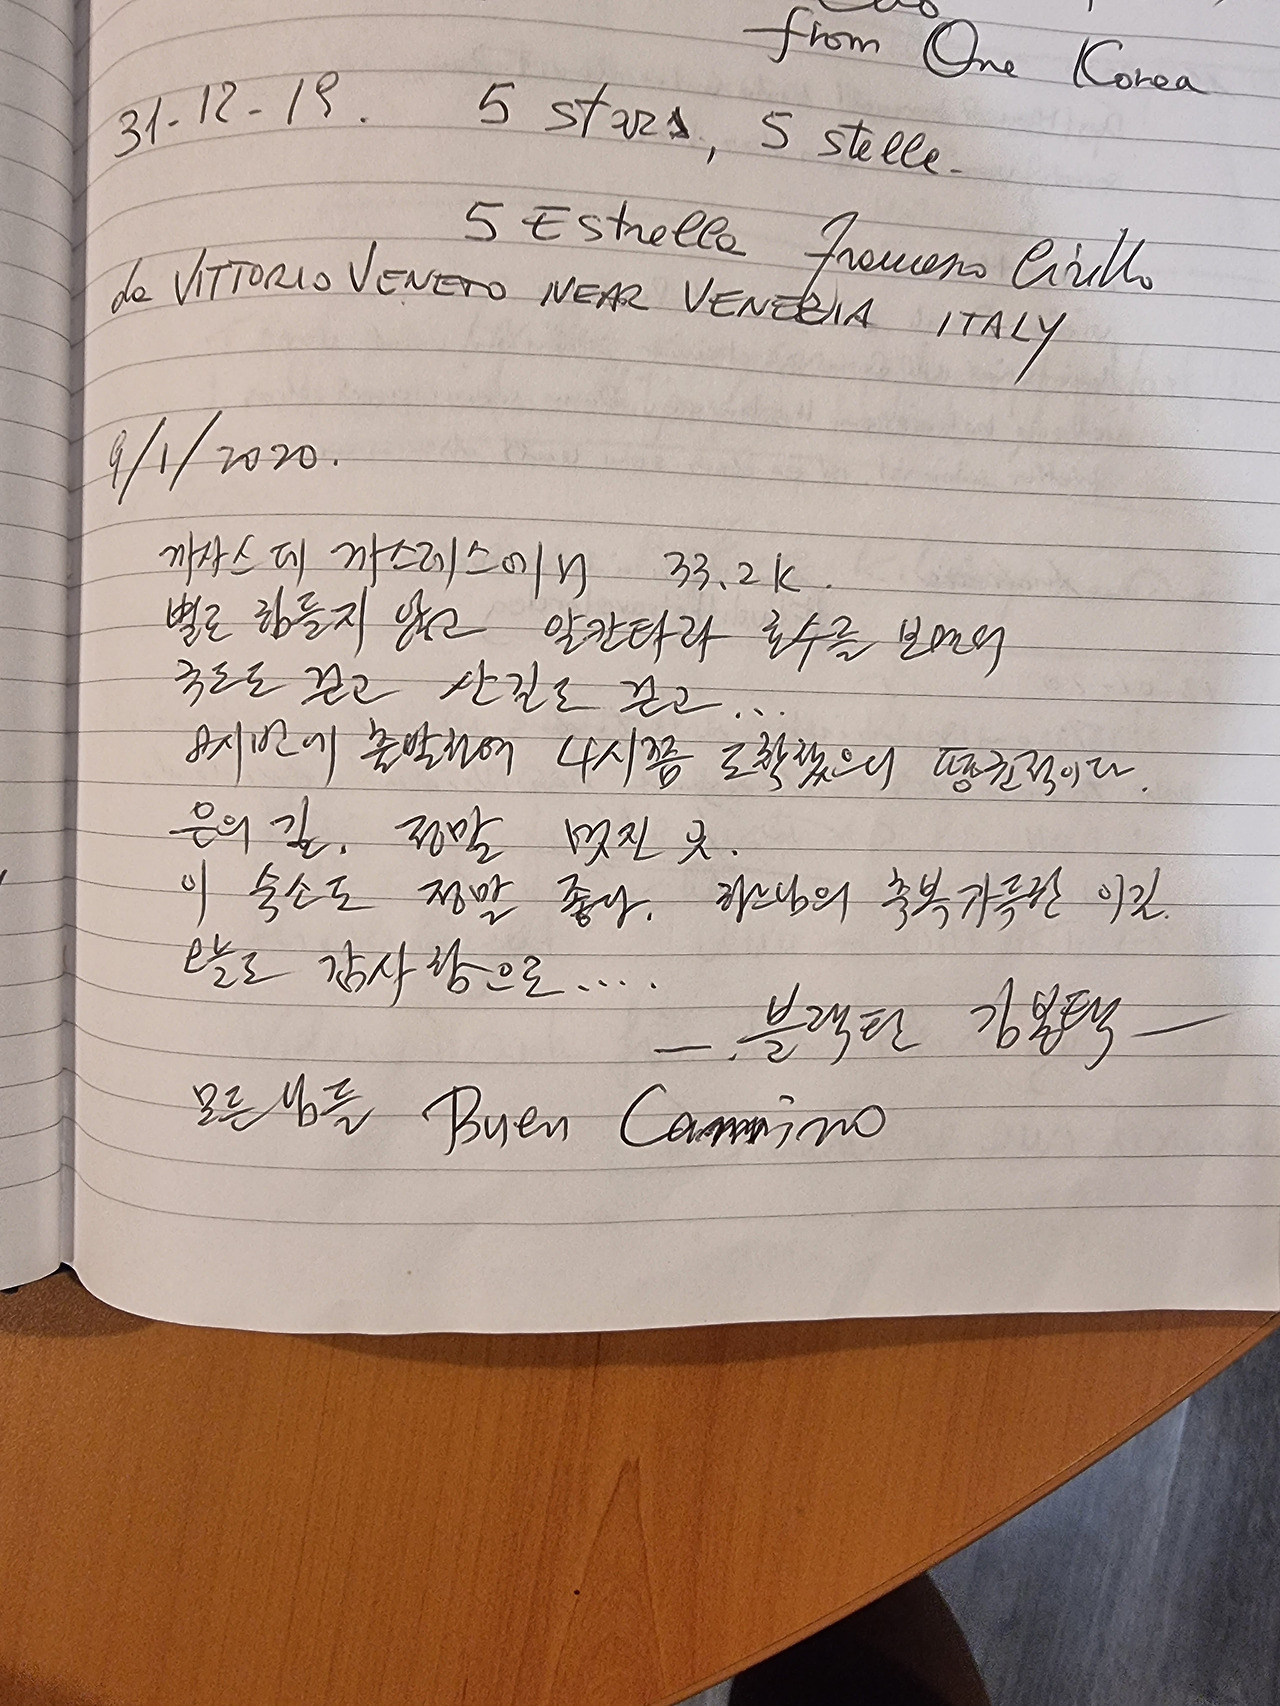 from One Korea
31-12-19. 5 stars, 5 stelle.
5 Estrella Francesco Cirillo
da VITTORIO VENETO NEAR VENEZIA ITALY
9/1/2020.
까사스 데 까스레스에서 33.2k.
별로 힘들지 않고 알칸타라 호수를 보면서
국도도 걷고 산길도 걷고...
8시반에 출발하여 4시쯤 도착했으니 평균적이다.
은의 길. 정말 멋진 곳.
이 숙소도 정말 좋다. 하느님의 축복가득한 이길.
오늘도 감사함으로....
—. 블랙탄 김봉택 —
모든님들 Buen Cammino